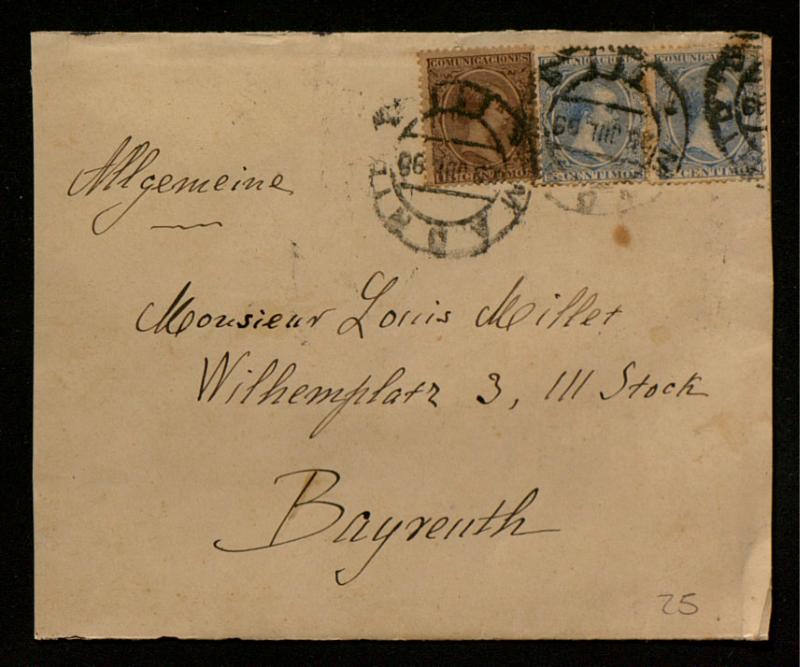 COMUNICACIONES
COMUNICACIONES
COMUNICACIONES
CENTIMOS
CENTIMOS
MADRID
JUL 99
Allgemeine
Monsieur Louis Millet
Wilhemplatz 3, III Stock
Bayreuth
25